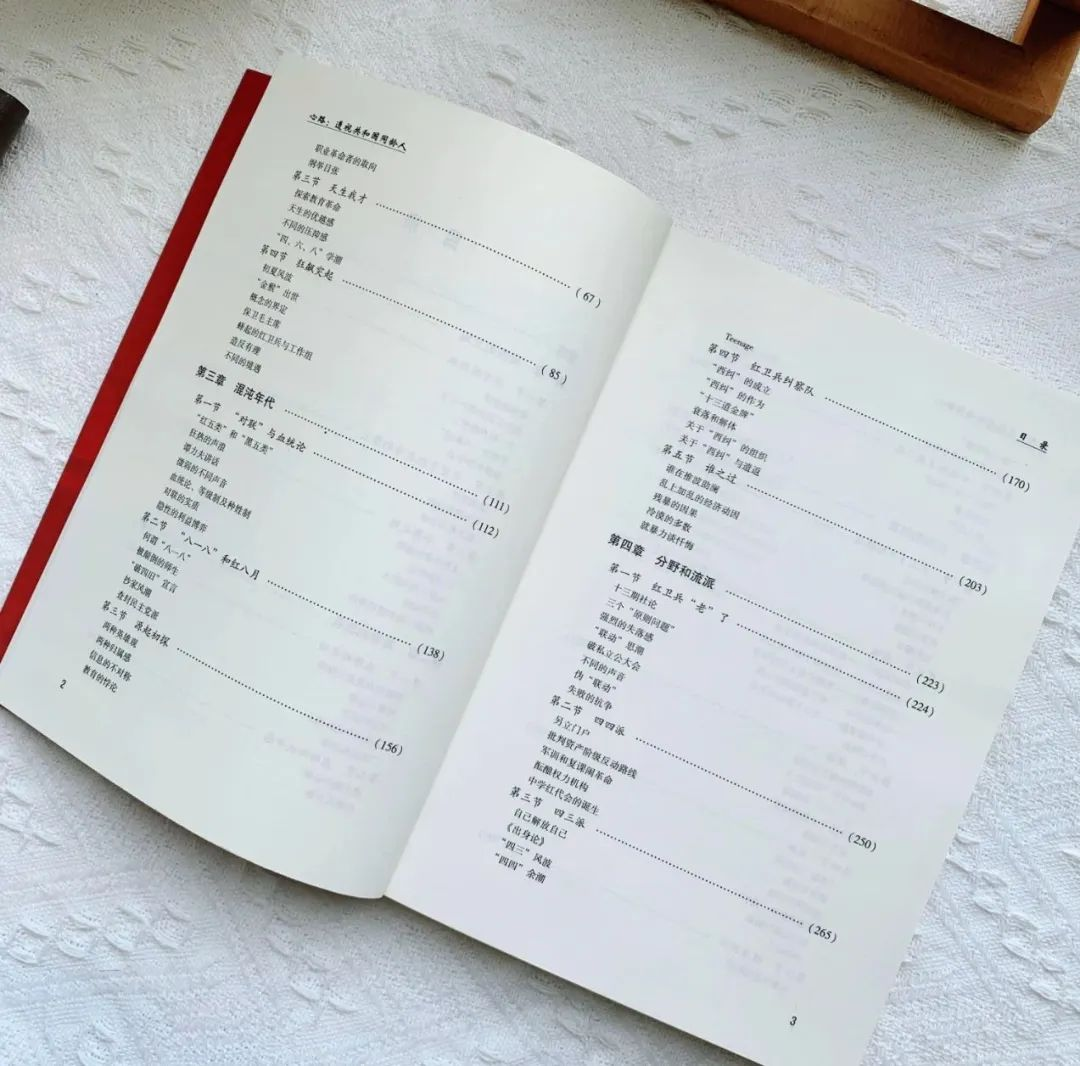 心路：透视共和国同龄人
职业革命者的取向
纲举目张
第三节 天生我才 (67)
探索教育革命
天生的优越感
不同的压抑感
“四、六、八”学潮
第四节 狂飙突起 (85)
初夏风波
“金猴”出世
概念的界定
保卫毛主席
蜂起的红卫兵与工作组
造反有理
不同的境遇
第三章 混沌年代 (111)
第一节 “对联”与血统论 (112)
“红五类”和“黑五类”
狂热的声浪
谭力夫讲话
微弱的不同声音
血统论、等级制及种姓制
对联的实质
隐性的利益博弈
第二节 “八一八”和红八月 (138)
何谓“八一八”
被颠倒的师生
“破四旧”宣言
抄家风潮
查封民主党派
第三节 源起初探 (156)
两种英雄观
两种归属感
信息的不对称
教育的悖论
2
目录
Teenage
第四节 红卫兵纠察队 (170)
“西纠”的成立
“西纠”的作为
“十三道金牌”
衰落和解体
关于“西纠”的组织
关于“西纠”与遣返
第五节 谁之过 (203)
谁在推波助澜
乱上加乱的经济动因
残暴的因果
冷漠的多数
就暴力谈忏悔
第四章 分野和流派 (223)
第一节 红卫兵“老”了 (224)
十三期社论
三个“原则问题”
强烈的失落感
“联动”思潮
破私立公大会
不同的声音
伪“联动”
失败的抗争
第二节 四四派 (250)
另立门户
批判资产阶级反动路线
军训和复课闹革命
酝酿权力机构
中学红代会的诞生
第三节 四三派 (265)
自己解放自己
《出身论》
“四三”风波
“四四”余潮
3